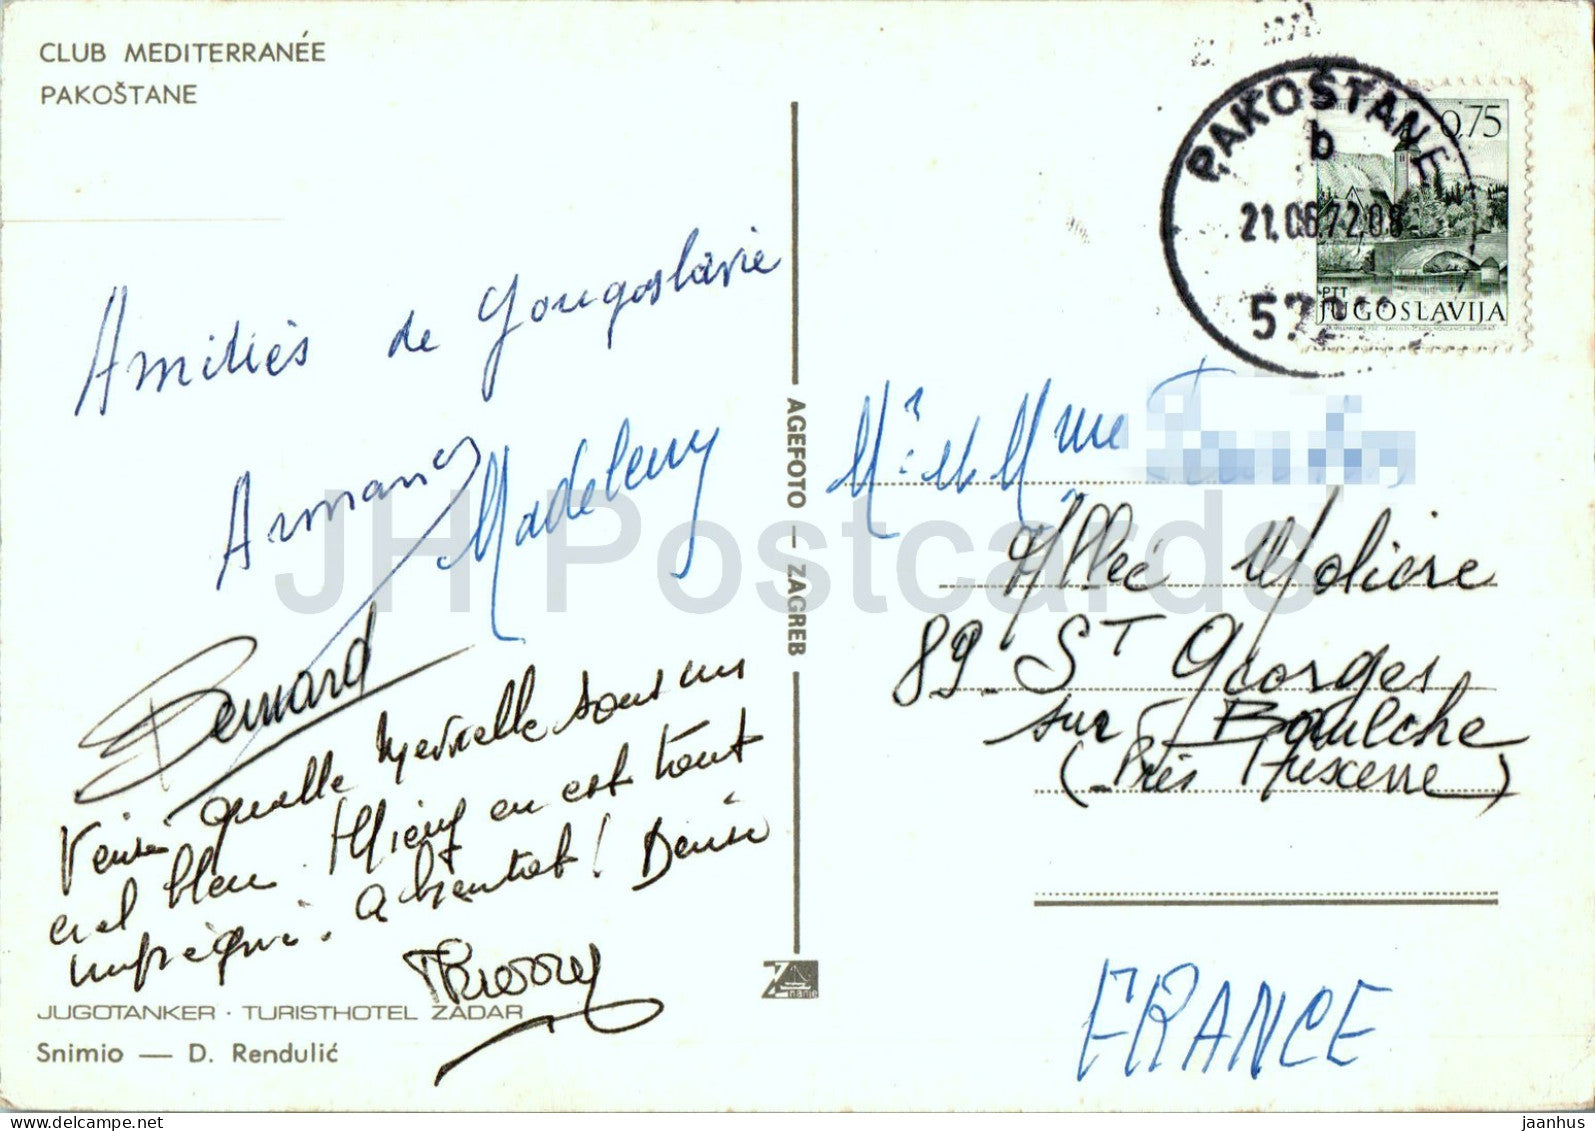 CLUB MEDITERRANÉE
PAKOŠTANE
Amitiés de Yougoslavie
Armand
Madeleny
Bernard
quelle Merveille sous un
ciel bleu. Thierry en est tout
imprégné. A bientot! Denise
Thierry
JUGOTANKER · TURISTHOTEL ZADAR
Snimio — D. Rendulić
AGEFOTO — ZAGREB
Znanje
PAKOŠTANE
b
21.06.72.08
0,75
PTT
JUGOSLAVIJA
Mr et Mme
Allée Molière
89_ St Georges
sur Baulche
(Près Auxerre)
FRANCE
JH Postcards
jaanhus